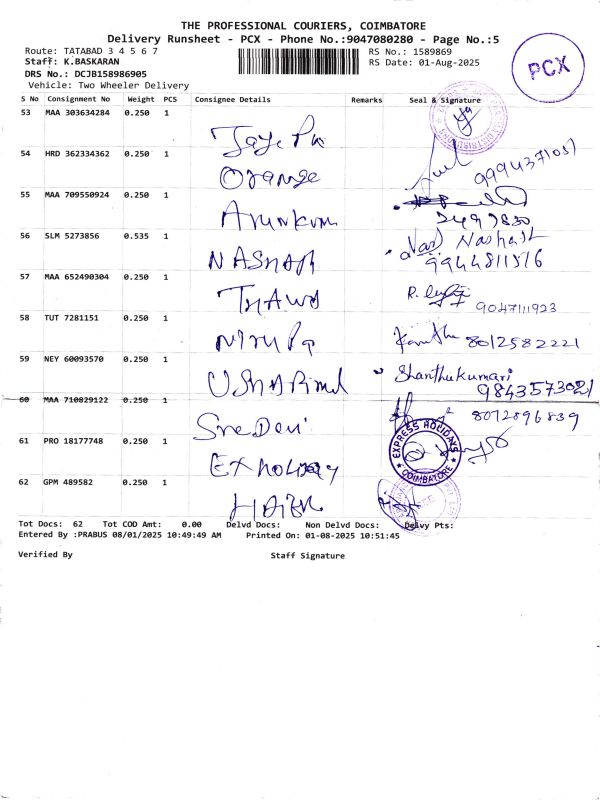 THE PROFESSIONAL COURIERS, COIMBATORE
Delivery Runsheet - PCX - Phone No.:9047080280 - Page No.:5
Route: TATABAD 3 4 5 6 7 RS No.: 1589869
Staff: K.BASKARAN RS Date: 01-Aug-2025
DRS No.: DCJB158986905
Vehicle: Two Wheeler Delivery
PCX
S No Consignment No Weight PCS Consignee Details Remarks Seal & Signature
53 MAA 303634284 0.250 1
54 HRD 362334362 0.250 1
Orange 9994371051
55 MAA 709550924 0.250 1
Arunkum
56 SLM 5273856 0.535 1
NASHAR Nashath
9944811516
57 MAA 652490304 0.250 1
9047111923
58 TUT 7281151 0.250 1
8012582221
59 NEY 60093570 0.250 1
Shanthukumari
9843573021
60 MAA 710829122 0.250 1
Sre Devi 8072896839
61 PRO 18177748 0.250 1
EXPRESS HOLIDAYS
COIMBATORE
62 GPM 489582 0.250 1
Tot Docs: 62 Tot COD Amt: 0.00 Delvd Docs: Non Delvd Docs: Delvy Pts:
Entered By :PRABUS 08/01/2025 10:49:49 AM Printed On: 01-08-2025 10:51:45
Verified By Staff Signature